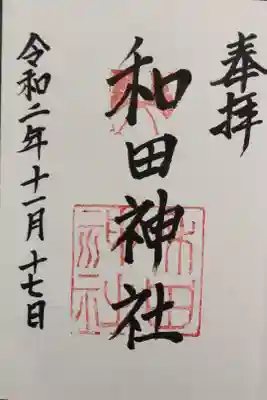 奉拝
和田神社
令和二年十一月十七日